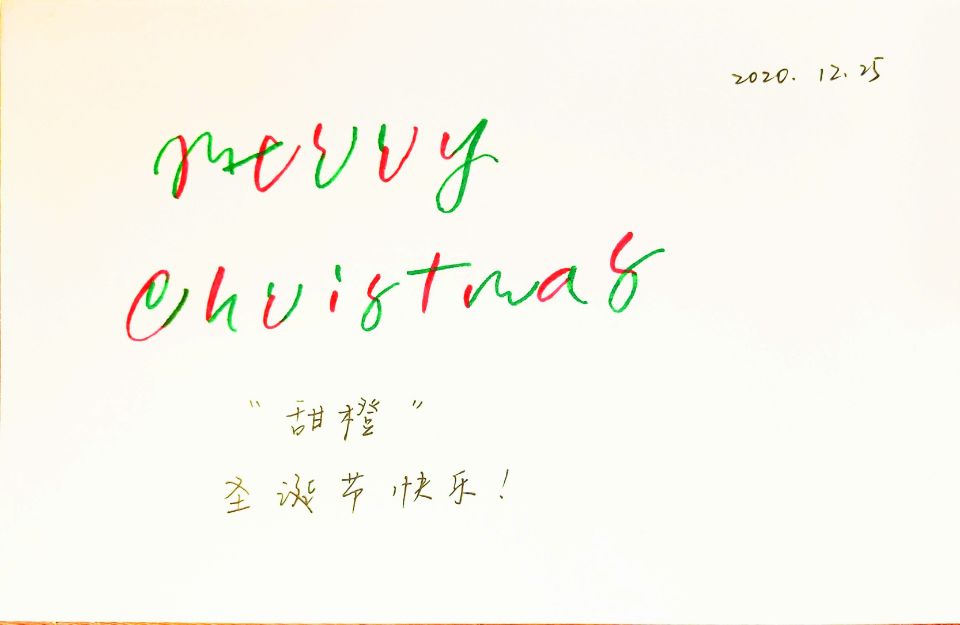 2020. 12. 25
Merry
Christmas
"甜橙"
圣诞节快乐！